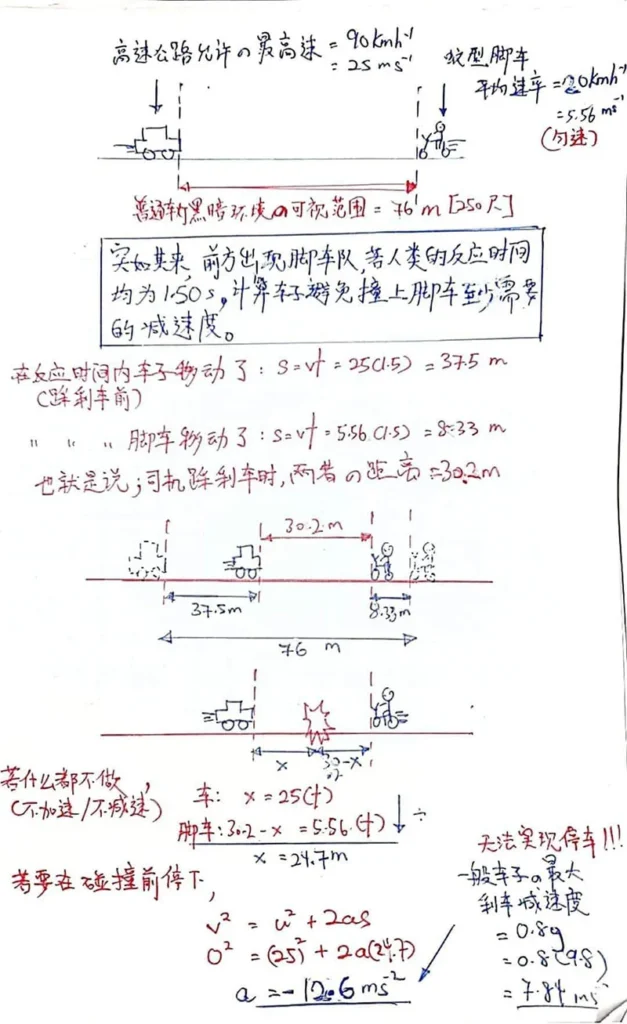 高速公路允许の最高速 = 90 kmh⁻¹
= 25 ms⁻¹
蚊型脚车
平均速率 = 20 kmh⁻¹
= 5.56 ms⁻¹
(匀速)
普通车灯黑暗环境の可视范围 = 76 m [250尺]
突如其来, 前方出现脚车队, 若人类的反应时间
均为1.50 s, 计算车子避免撞上脚车至少需要
的减速度。
在反应时间内车子移动了: s = vt = 25(1.5) = 37.5 m
(踩刹车前)
" " " 脚车移动了: s = vt = 5.56(1.5) = 8.33 m
也就是说; 司机踩刹车时, 两者の距离 = 30.2 m
30.2 m
37.5 m
8.33 m
76 m
x
30.2 - x
若什么都不做,
(不加速/不减速)
车: x = 25(t)
脚车: 30.2 - x = 5.56(t)
÷
x = 24.7 m
若要在碰撞前停下,
v² = u² + 2as
0² = (25)² + 2a(24.7)
a = -12.6 ms⁻²
无法实现停车!!!
一般车子の最大
刹车减速度
= 0.8g
= 0.8(9.8)
= 7.84 ms⁻²